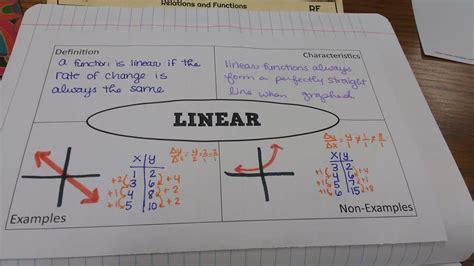 Relations and Functions
RF
Definition
a function is linear if the
rate of change is
always the same
Characteristics
linear functions always
form a perfectly straight
line when graphed
LINEAR
Δy/Δx = 4/2 = 2/1 = 2/1
x y
1 2
+2 3 6 +4
+1 4 8 +2
+1 5 10 +2
Examples
Δy/Δx = 4/1 ≠ 1/1 ≠ 8/1
x y
3 2
+1 4 6 +4
+1 5 7 +1
+1 6 15 +8
Non-Examples